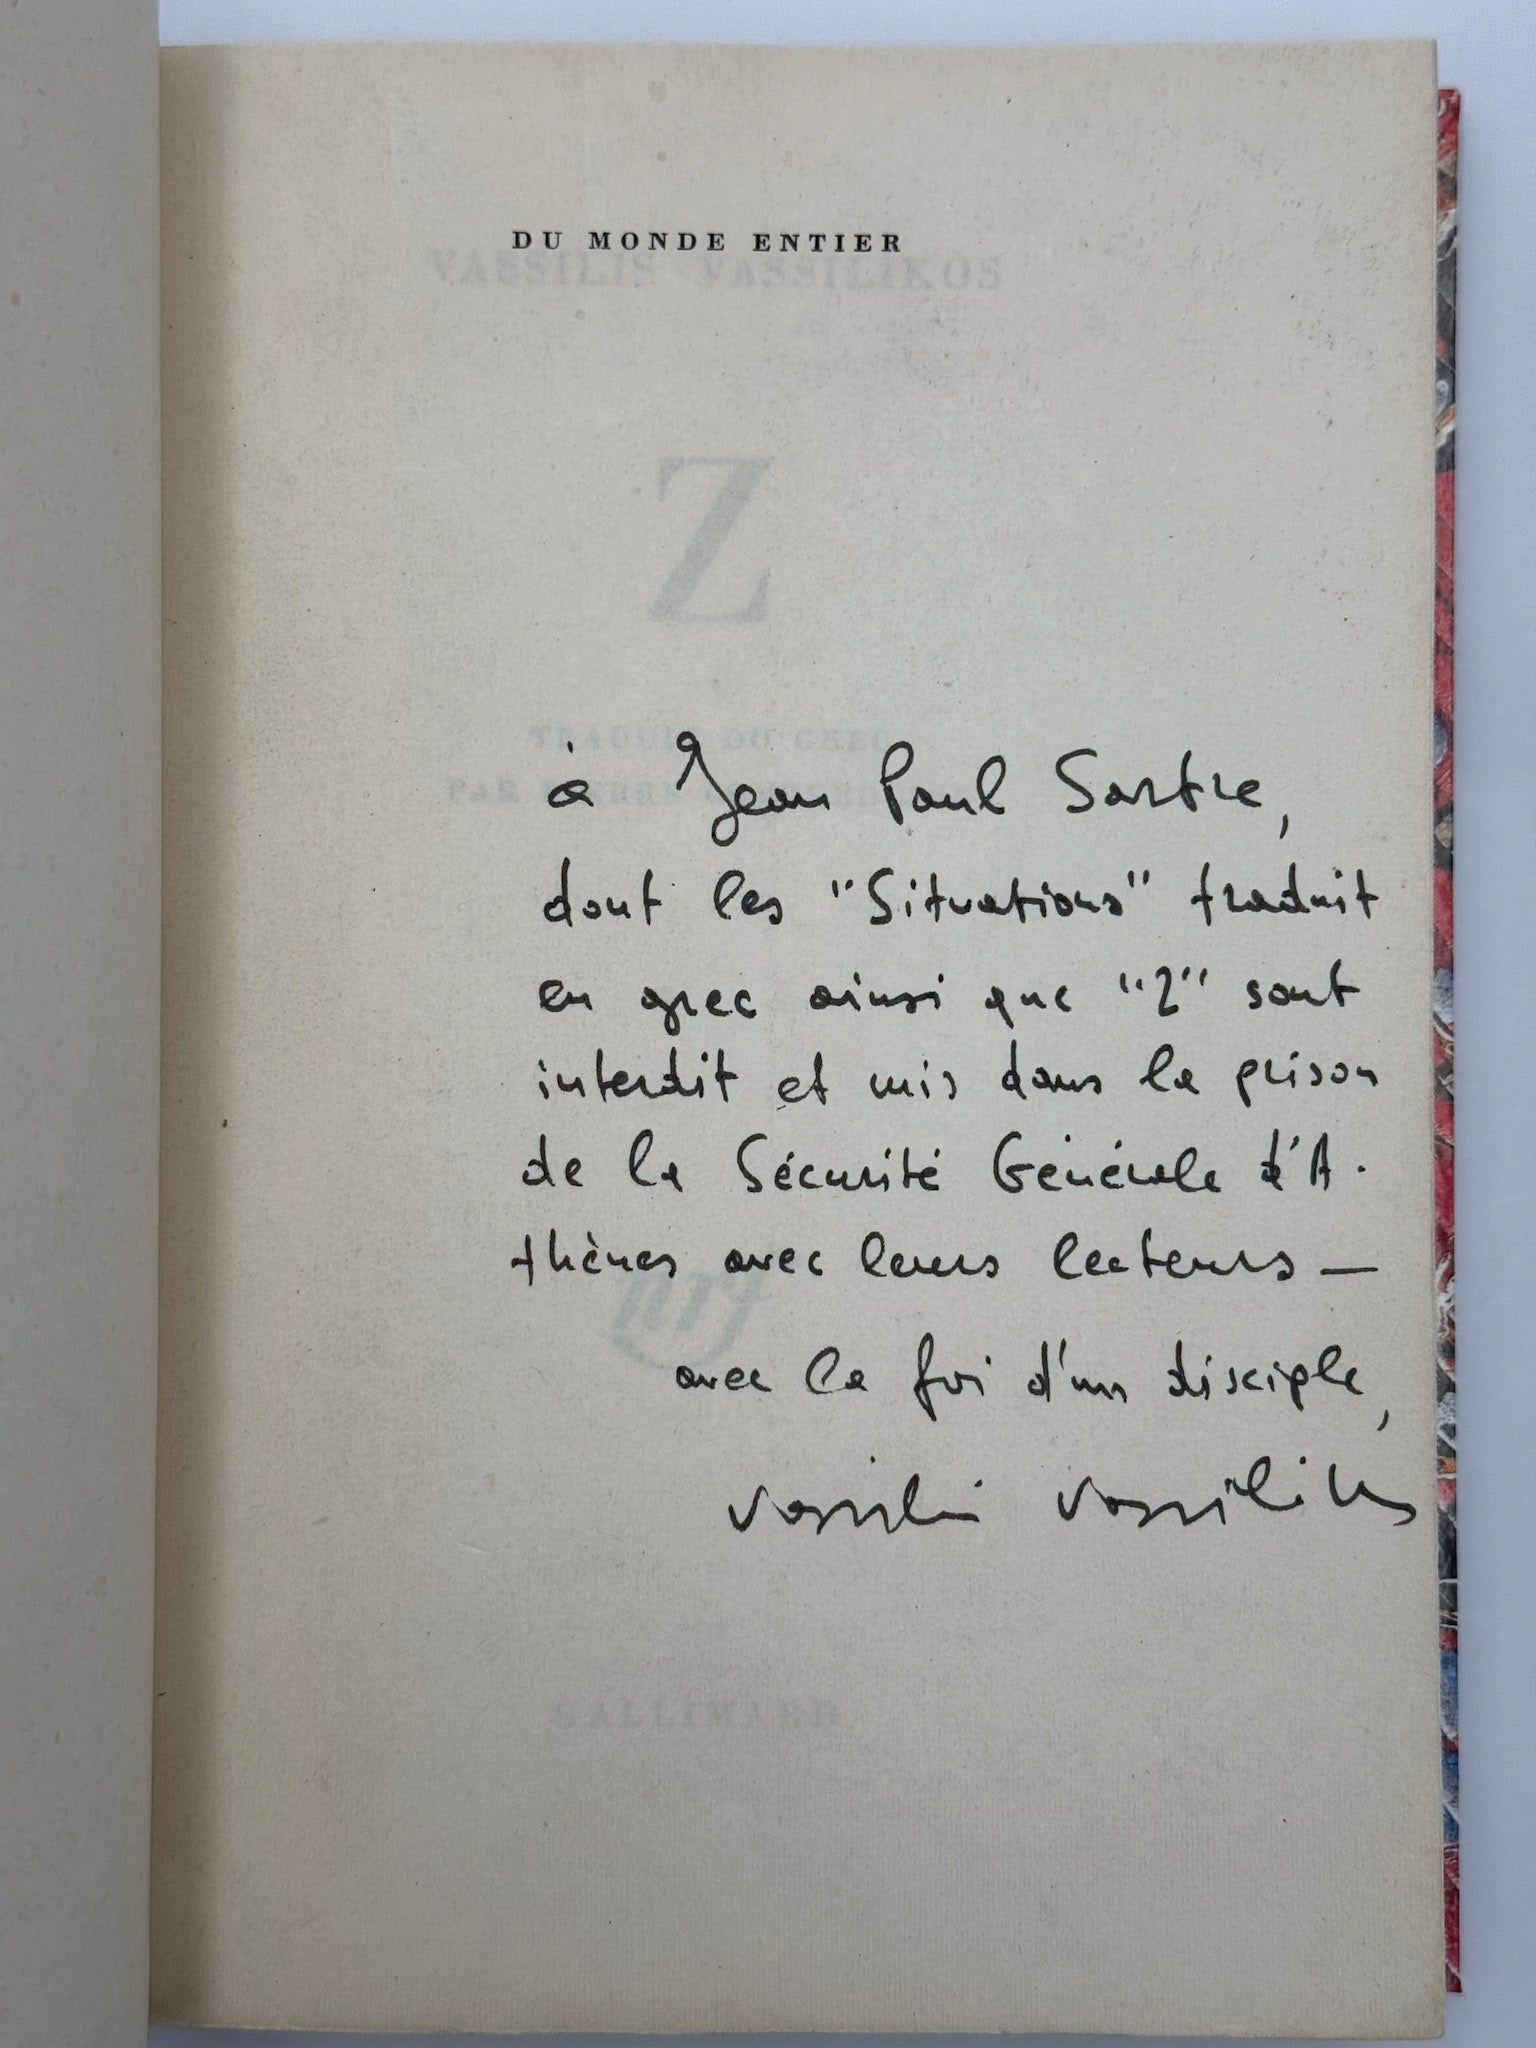 DU MONDE ENTIER
VASSILIS VASSILIKOS
Z
TRADUIT DU GREC
PAR
à Jean Paul Sartre,
dont les "Situations" traduit
en grec ainsi que "Z" sont
interdit et mis dans la prison
de la Sécurité Générale d'A-
thènes avec leurs lecteurs —
avec la foi d'un disciple,
Vassilis Vassilikos
nrf
GALLIMARD